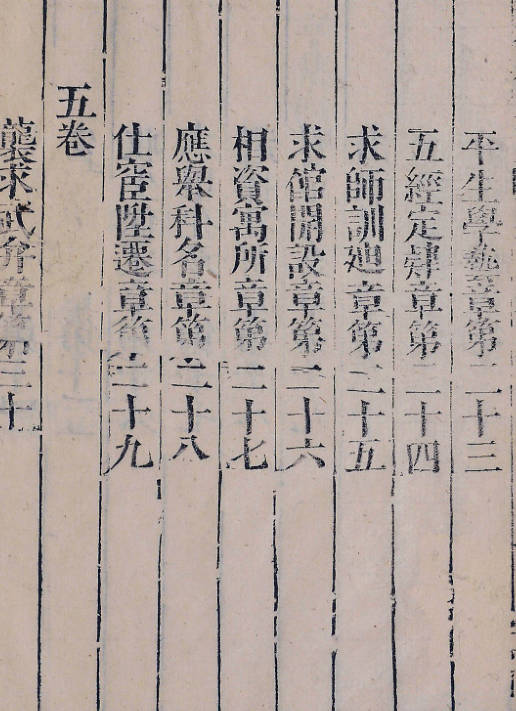 平生學藝章第二十三
五經定肄章第二十四
求師訓廸章第二十五
求館開設章第二十六
相資寓所章第二十七
應舉科名章第二十八
仕宦陞遷章第二十九
五卷
襲求武弁章第三十